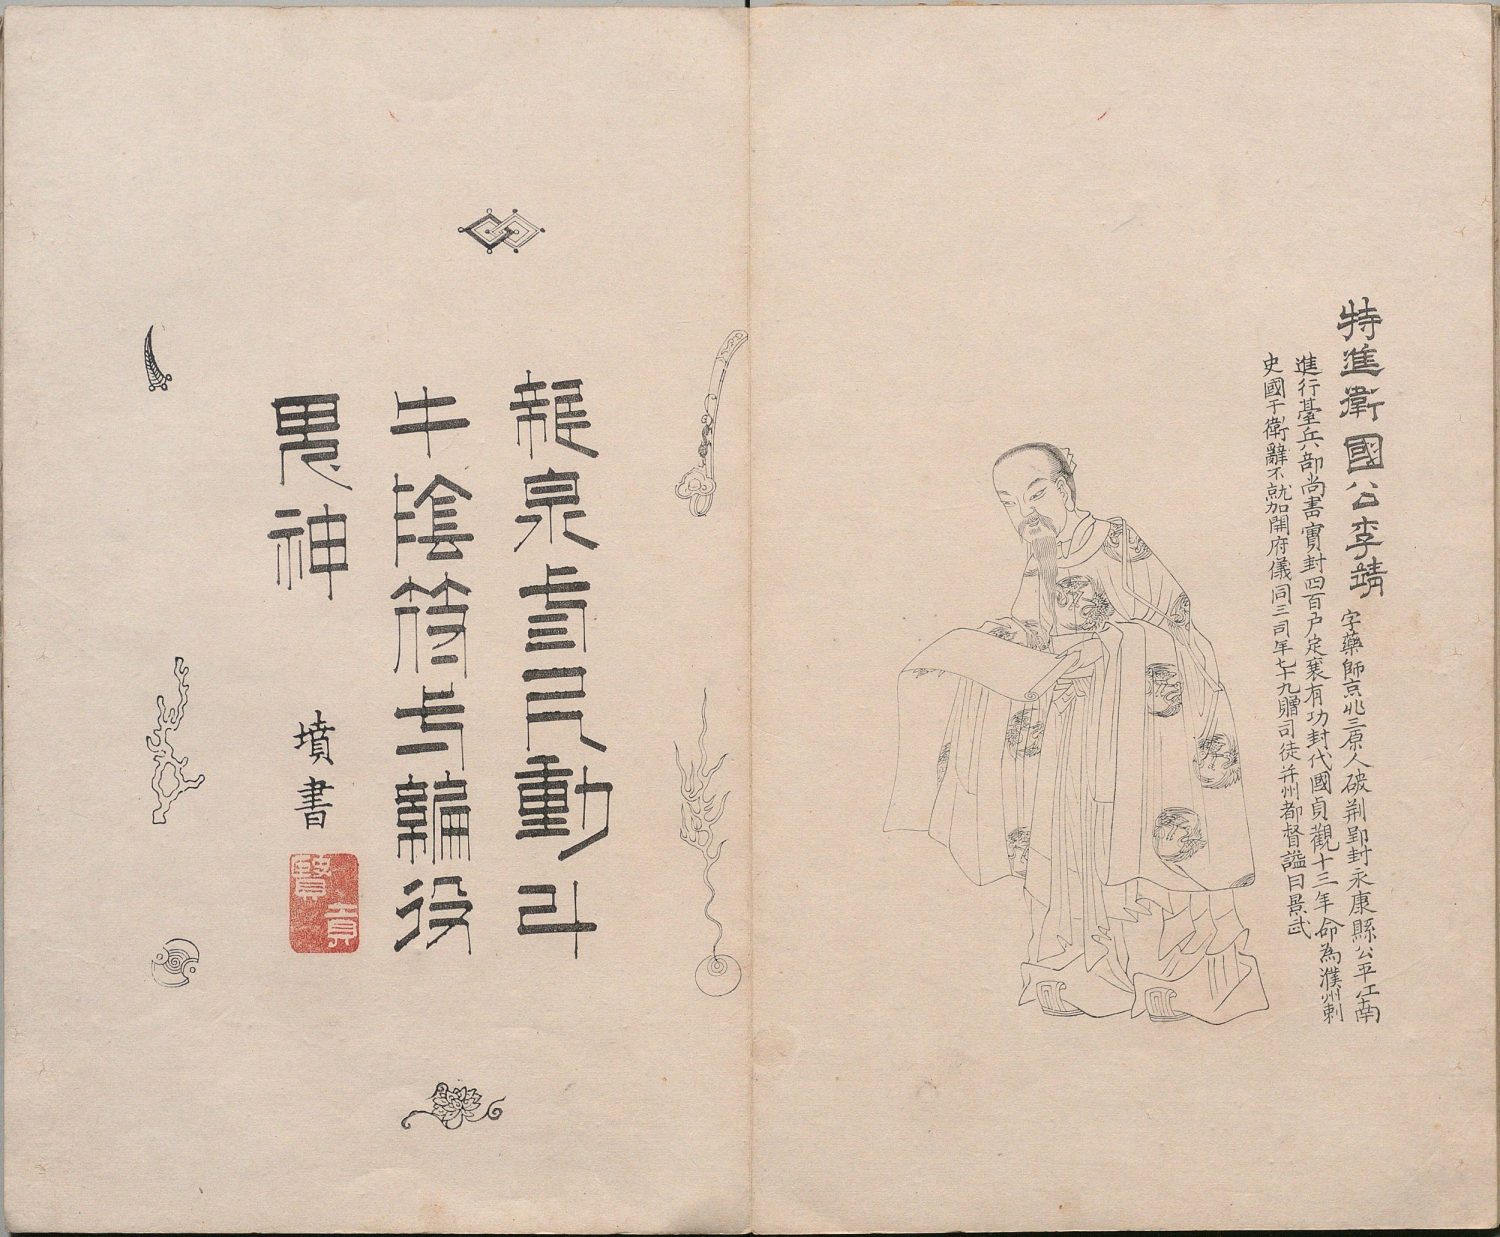 特進衛國公李靖
字藥師京兆三原人破荆郢封永康縣公平江南
進行臺兵部尚書實封四百户定襄有功封代國貞觀十三年命為濮州刺
史國于衛辭不就加開府儀同三司年七十九贈司徒并州都督謚曰景武
龍泉尺動斗
牛陰符役
鬼神
墳書